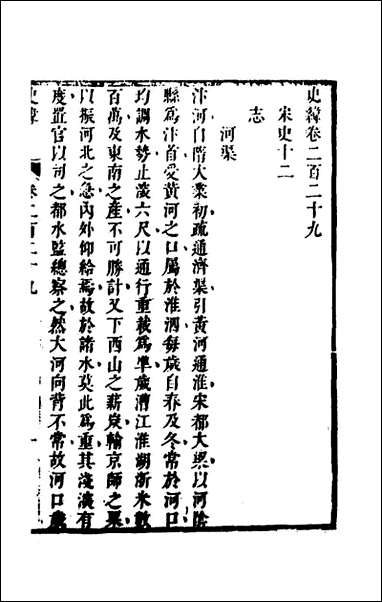 史緯卷二百二十九
宋史十二
志
河渠
汴河自隋大業初疏通濟渠引黃河通淮宋都大梁以河陰
縣爲汴首受黃河之口屬於淮泗每歲自春及冬常於河口
均調水勢止深六尺以通行重載爲準歲漕江淮湖浙米數
百萬及東南之産不可勝計又下西山之薪炭輸京師之粟
以振河北之急內外仰給焉故於諸水莫此爲重其淺深有
度置官以司之都水監總察之然大河向背不常故河口歲
史緯 卷二百二十九 一